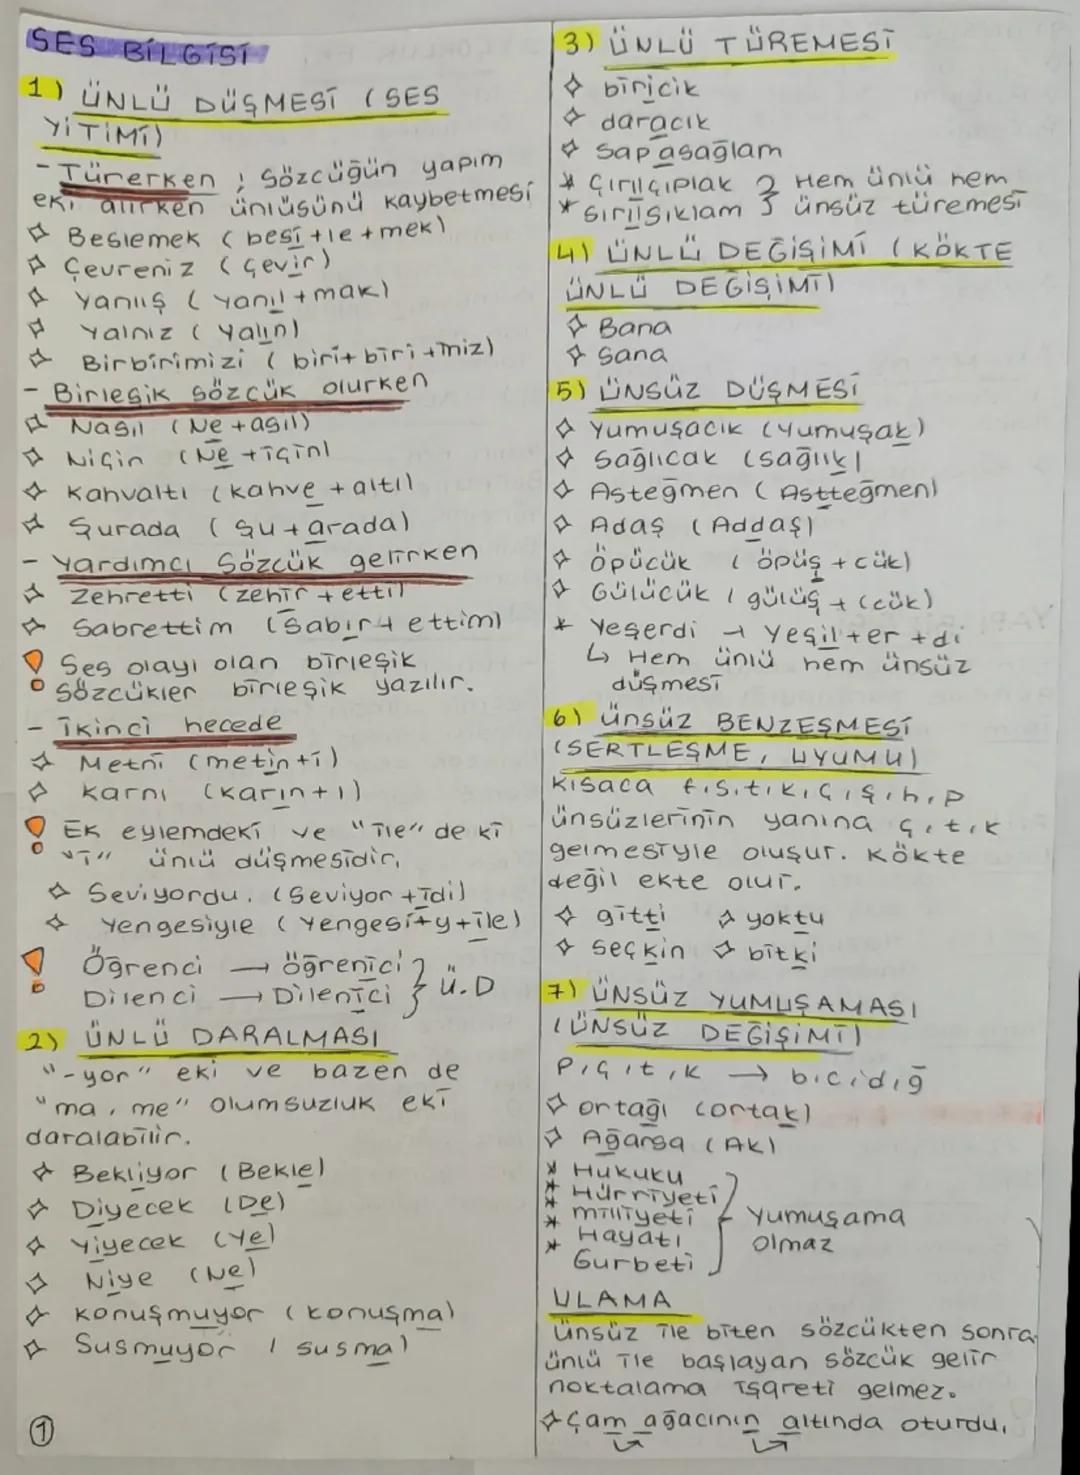 SES BİLGİSİ
1) ÜNLÜ DÜŞMESİ (SES
YİTİMİ)
- Türerken ; Sözcüğün yapım
eki alırken ünlüsünü kaybetmesi
✧ Beslemek (besi+le+mek)
✧ Çevreniz (çevir)
✧ Yanlış (yanıl+mak)
✧ Yalnız (yalın)
✧ Birbirimizi (biri+biri+miz)
- Birleşik sözcük olurken
✧ Nasıl (Ne+asıl)
✧ Niçin (Ne+için)
✧ Kahvaltı (kahve+altı)
✧ Şurada (Şu+arada)
- Yardımcı Sözcük gelirken
✧ Zehretti (zehir+etti)
✧ Sabrettim (Sabır+ettim)
! Ses olayı olan birleşik
sözcükler birleşik yazılır.
- İkinci hecede
✧ Metni (metin+i)
✧ Karnı (karın+ı)
! Ek eylemdeki ve "ile" de ki
"i" ünlü düşmesidir.
✧ Seviyordu. (Seviyor+idi)
✧ Yengesiyle (Yengesi+y+ile)
! Öğrenci → öğrenici } Ü.D
Dilenci → Dilenici
2) ÜNLÜ DARALMASI
"-yor" eki ve bazen de
"ma, me" olumsuzluk eki
daralabilir.
✧ Bekliyor (Bekle)
✧ Diyecek (De)
✧ Yiyecek (Ye)
✧ Niye (Ne)
✧ Konuşmuyor (konuşma)
✧ Susmuyor (susma)
1
3) ÜNLÜ TÜREMESİ
✧ biricik
✧ daracık
✧ sapasağlam
* Çırılçıplak } Hem ünlü hem
* sırılsıklam ünsüz türemesi
4) ÜNLÜ DEĞİŞİMİ (KÖKTE
ÜNLÜ DEĞİŞİMİ)
✧ Bana
✧ Sana
5) ÜNSÜZ DÜŞMESİ
✧ Yumuşacık (Yumuşak)
✧ Sağlıcak (sağlık)
✧ Asteğmen (Astteğmen)
✧ Adaş (Addaş)
✧ Öpücük (öpüş+cük)
✧ Gülücük (gülüş+(cük)
* Yeşerdi → Yeşil+er+di
↳ Hem ünlü hem ünsüz
düşmesi
6) Ünsüz BENZEŞMESİ
(SERTLEŞME, UYUMU)
Kısaca f,s,t,k,ç,ş,h,p
ünsüzlerinin yanına ç,t,k
gelmesiyle oluşur. Kökte
değil ekte olur.
✧ gitti ✧ yoktu
✧ seçkin ✧ bitki
7) ÜNSÜZ YUMUŞAMASI
(ÜNSÜZ DEĞİŞİMİ)
p,ç,t,k → b,c,d,ğ
✧ Ortağı (ortak)
✧ Ağarsa (Ak)
* Hukuku
* Hürriyeti
* milliyeti } Yumuşama
* Hayatı olmaz
Gurbeti
ULAMA
Ünsüz ile biten sözcükten sonra
ünlü ile başlayan sözcük gelir
noktalama işareti gelmez.
✧ Çam ağacının altında oturdu.